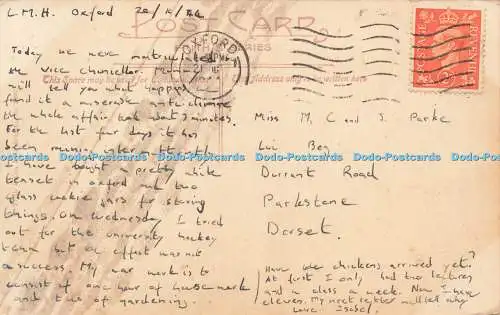 L.M.H. Oxford
POST CARD
OXFORD
Today we were matriculated
the Vice Chancellor. Mummy
This Space may be used for
The Address only to be written here
will tell you what happens
found it a miserable anticlimax
the whole affair took about 3 minutes.
For the last few days it has
been raining
I have bought a pretty white
teaset in Oxford and two
glass cookie jars for storing
things. On Wednesday I tried
out for the university hockey
team but the effort was not
a success. My war work is to
consist of one hour of housework
and two of gardening.
Miss M. C and S. Parke
Lui Bey
Durrant Road
Parkstone
Dorset.
Have the chickens arrived yet?
At first I only had two lectures
and a class a week. Now I have
eleven. My next letter will tell why
Love. Isobel.
Dodo-Postcards Dodo-Postcards Dodo-Postcards Dodo-Postcards